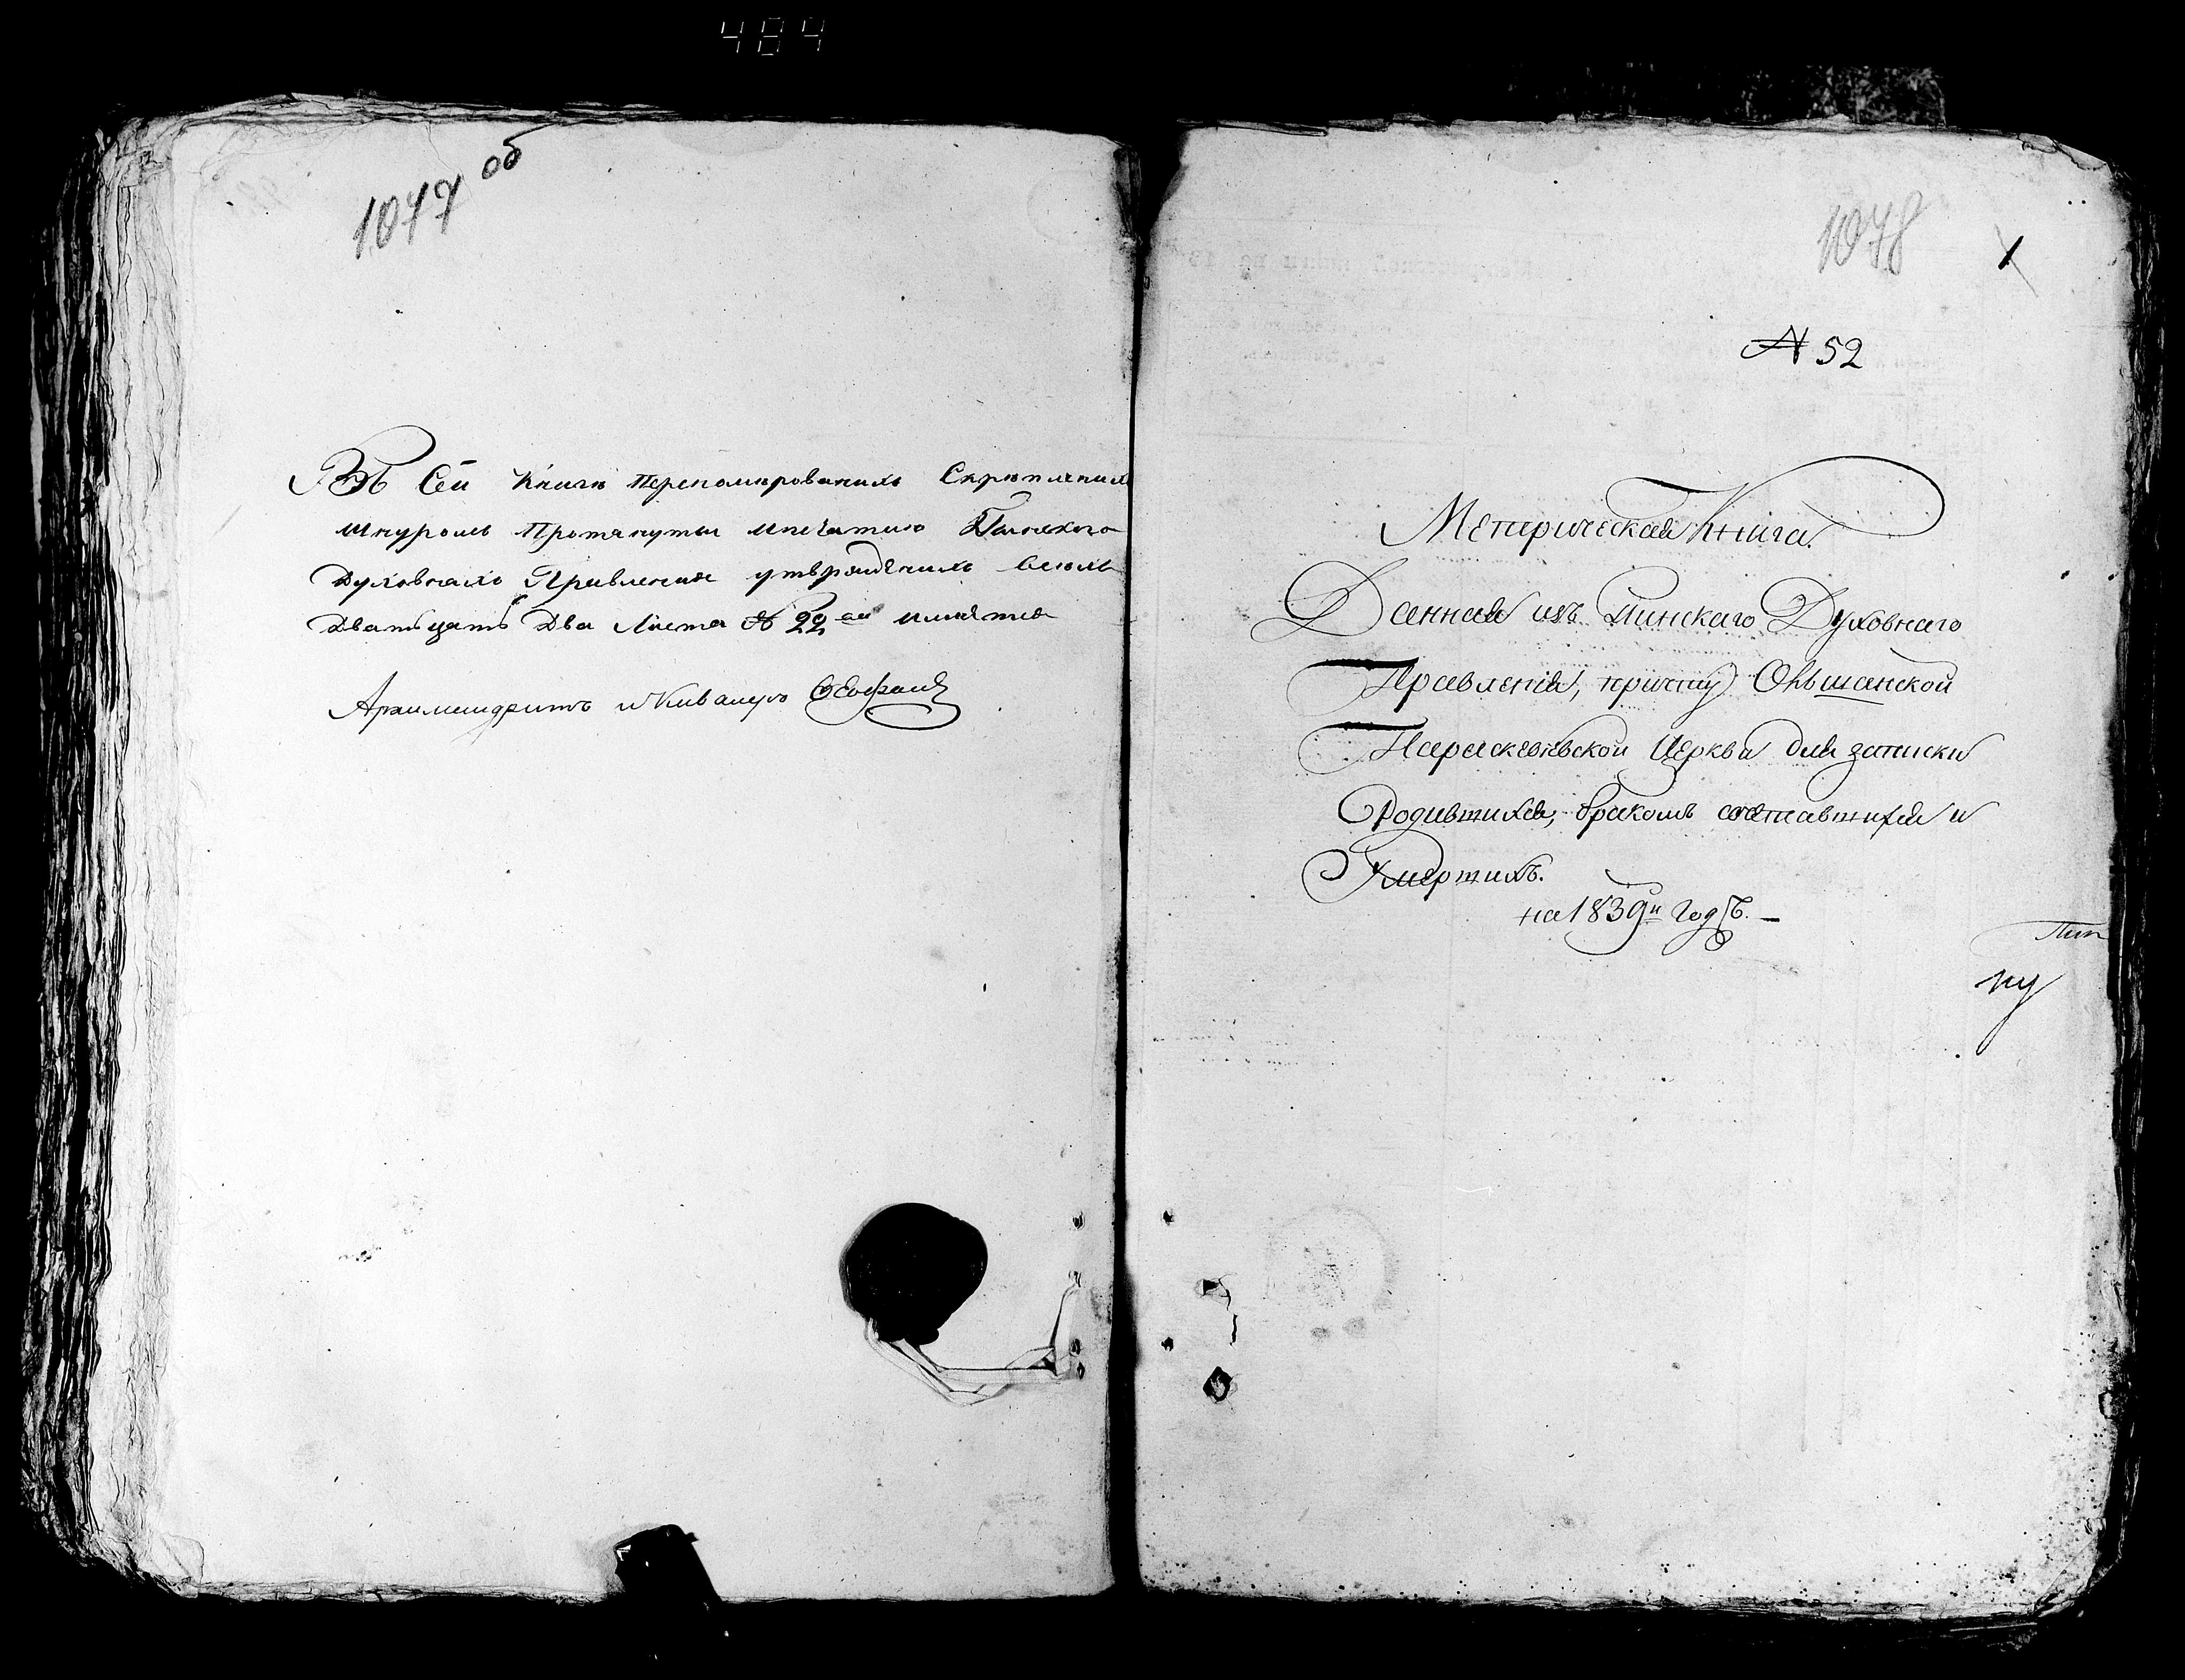 484
1077 об
Въ Сей Книгѣ Перенамированихъ Скрѣпленихъ
шнуромъ Протянутыи ипечатию Пинскаго
Духовнахо Правления утвржденихъ всѣхъ
Дватцать Два Листа № 22 ои
Архимандритъ и Кавалеръ
1078
1
№ 52
Метрическая Книга.
Данная изъ Пинскаго Духовнаго
Правленія, причту Ольшанской
Параскевіевской Церкви для записки
Родившихся, бракомъ сочетавшихся и
Умершихъ.
на 1839й Годъ. —
Пин
ну